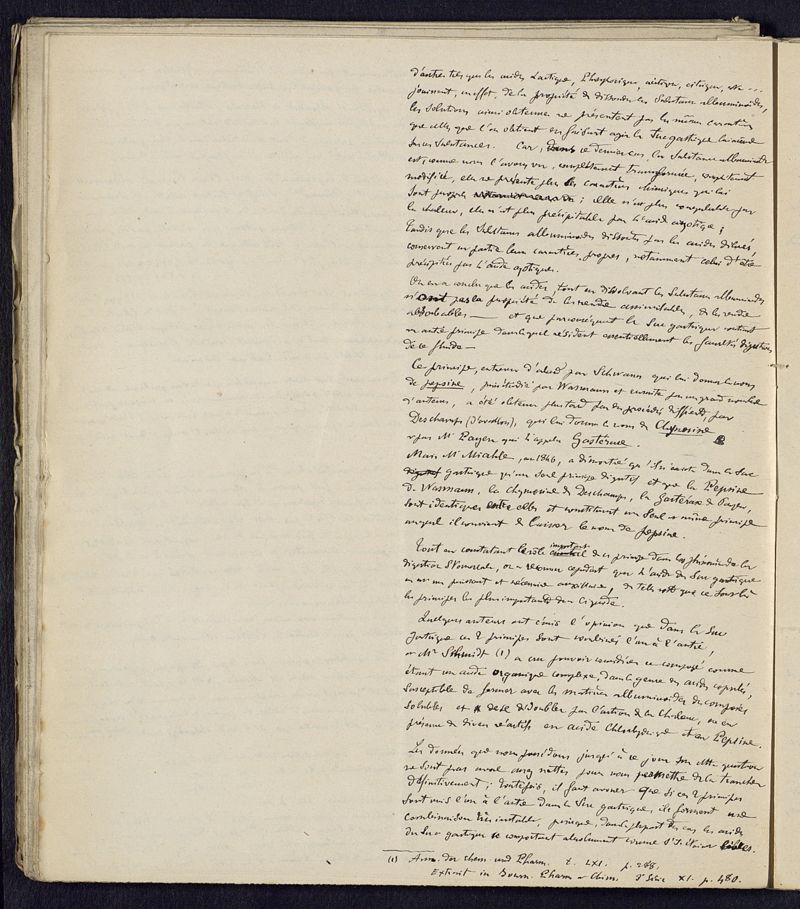 d'autre tels que les acides Lactique, Phosphorique, acétique, citrique, etc ...
jouissent, en effet, de la propriété de dissoudre les Substances albuminoïdes,
les Solutions ainsi obtenues ne présentent pas les mêmes caractères
que celles que l'on obtient en faisant agir le Suc gastrique lui même
sur ces substances. Car, dans ce dernier cas les Substances albuminoïdes
est, comme nous l'avons vu, complètement transformée, complètement
modifiée, elle ne présente plus les caractères chimiques qui lui
sont propres ; elle n'est plus coagulable par
la chaleur, elle n'est plus précipitable par l'acide azotique ;
tandis que les Substances albuminoïdes dissoutes par les acides dilués,
conservent en partie leurs caractères propres, notamment celui d'être
précipitées par l'acide azotique.
On en a conclu que les acides, tout en dissolvant les Substances albuminoïdes
n'ont pas la propriété de les rendre assimilables, de les rendre
absorbables — et que par conséquent le Suc gastrique contient
un autre principe dans lequel résident essentiellement les facultés digestives
de ce fluide —
Ce principe, entrevu d'abord par Schwann qui lui donna le nom
de pepsine, puis étudié par Wasmann et ensuite par un grand nombre
d'auteurs, a été obtenu plus tard par des procédés différents, par
Deschamps (d'avallon), qui lui donna le nom de Chymosine
et par Mr Payen qui l'appela Gastérase.
Mais Mr Mialhe, en 1846, a démontré qu'il n'existe dans le Suc
gastrique qu'un seul principe digestif et que la Pepsine
de Wasmann, la Chymosine de Deschamps, la Gastérase de Payen,
sont identiques entre elles et constituent un seul et même principe
auquel il convient de laisser le nom de pepsine.
Tout en constatant le rôle important de ce principe dans les phénomènes de la
digestion Stomacale, on a reconnu cependant que l'acide du Suc gastrique
en est un puissant et nécessaire auxiliaire, de telle sorte que ce sont là
les principes les plus importants de ce liquide.
Quelques auteurs ont émis l'opinion que dans le Suc
gastrique ces 2 principes sont combinés l'un à l'autre,
et Mr Schmidt (1) a cru pouvoir considérer ce composé comme
étant un acide organique complexe, dans le genre des acides copulés,
susceptible de former avec les matières albuminoïdes des composés
solubles et de se dédoubler par l'action de la chaleur, ou en
présence de divers réactifs en acide Chlorhydrique et en Pepsine.
Les données que nous possédons jusqu'à ce jour sur cette question
ne sont pas assez nettes pour nous permettre de la trancher
définitivement ; toutefois, il faut avouer que si ces 2 principes
sont unis l'un à l'autre dans le Suc gastrique, ils forment une
combinaison très instable, puisque, dans la plupart des cas les acides
du Suc gastrique se comportent absolument comme s'ils étaient libres.
(1) Ann. der chem. und Pharm. t. LXI. p. 288.
Extrait in Journ. Pharm et Chim. 3e Série XI. p. 480.